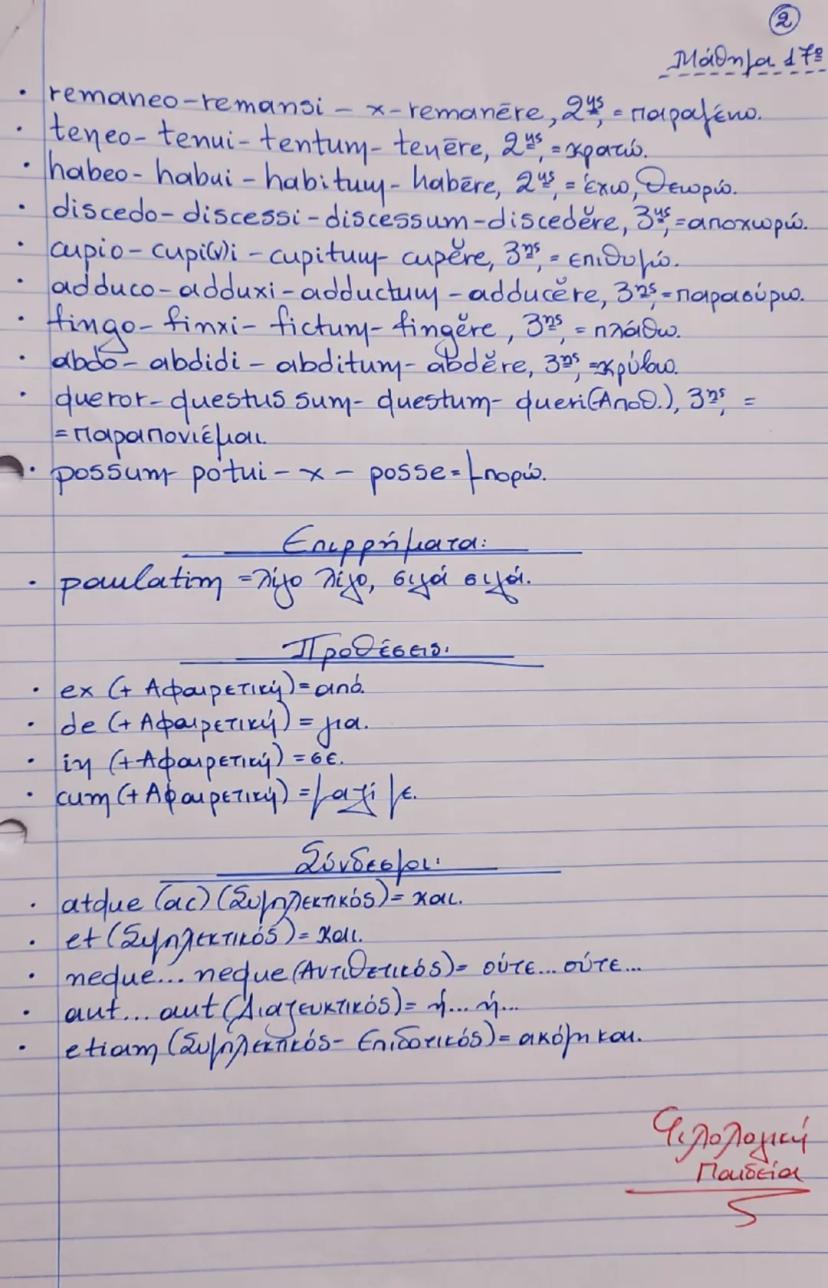 2
Μάθημα 17ο
• remaneo-remansi - x-remanēre, 2ης, = παραμένω.
• teneo- tenui- tentum- tenēre, 2ης, = κρατώ.
• habeo- habui - habitum- habēre, 2ης, = έχω, θεωρώ.
• discedo-discessi-discessum-discedĕre, 3ης,=αποχωρώ.
• cupio-cupi(v)i - cupitum- cupĕre, 3ης, = επιθυμώ.
• adduco-adduxi-adductum-adducĕre, 3ης,=παρασύρω.
• fingo-finxi- fictum-fingĕre, 3ης, = πλάθω.
• abdo- abdidi - abditum- abdĕre, 3ης, =κρύβω.
• queror-questus sum- questum- queri(Αποθ.), 3ης, =
=παραπονιέμαι.
• possum- potui - x - posse=μπορώ.
Επιρρήματα:
• paulatim =λίγο λίγο, σιγά σιγά.
Προθέσεις:
• ex (+ Αφαιρετική)=από.
• de (+Αφαιρετική) = για.
• in (+Αφαιρετική) =σε.
• cum (+Αφαιρετική) =μαζί με.
Σύνδεσμοι:
• atque (ac) (Συμπλεκτικός)= και.
• et (Συμπλεκτικός)= και.
• neque... neque (Αντιθετικός)= ούτε... ούτε...
• aut... aut (Διαζευκτικός)= ή... ή...
• etiam (Συμπλεκτικός- Επιδοτικός)= ακόμη και.
Φιλολογική
Παιδεία